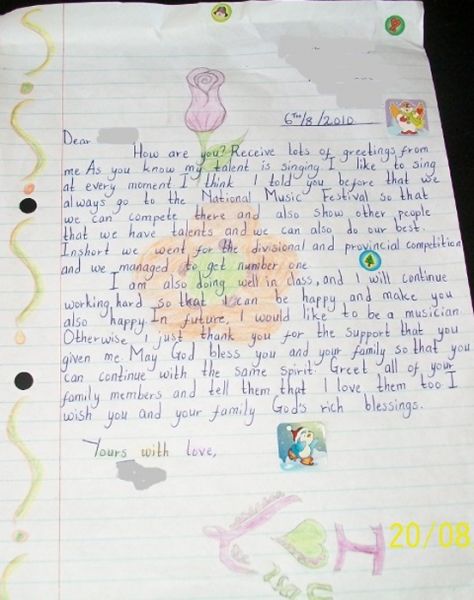 6TH/8/2010
Dear
How are you? Receive lots of greetings from
me. As you know my talent is singing. I like to sing
at every moment I think I told you before that we
always go to the National Music Festival so that
we can compete there and also show other people
that we have talents and we can also do our best.
Inshort we went for the divisional and provincial competition
and we managed to get number one.
I am also doing well in class, and I will continue
working hard so that I can be happy and make you
also happy. In future, I would like to be a musician.
Otherwise I just thank you for the support that you
given me. May God bless you and your family so that you
can continue with the same spirit. Greet all of your
family members and tell them that I love them too. I
wish you and your family God's rich blessings.
Yours with love,
20/08